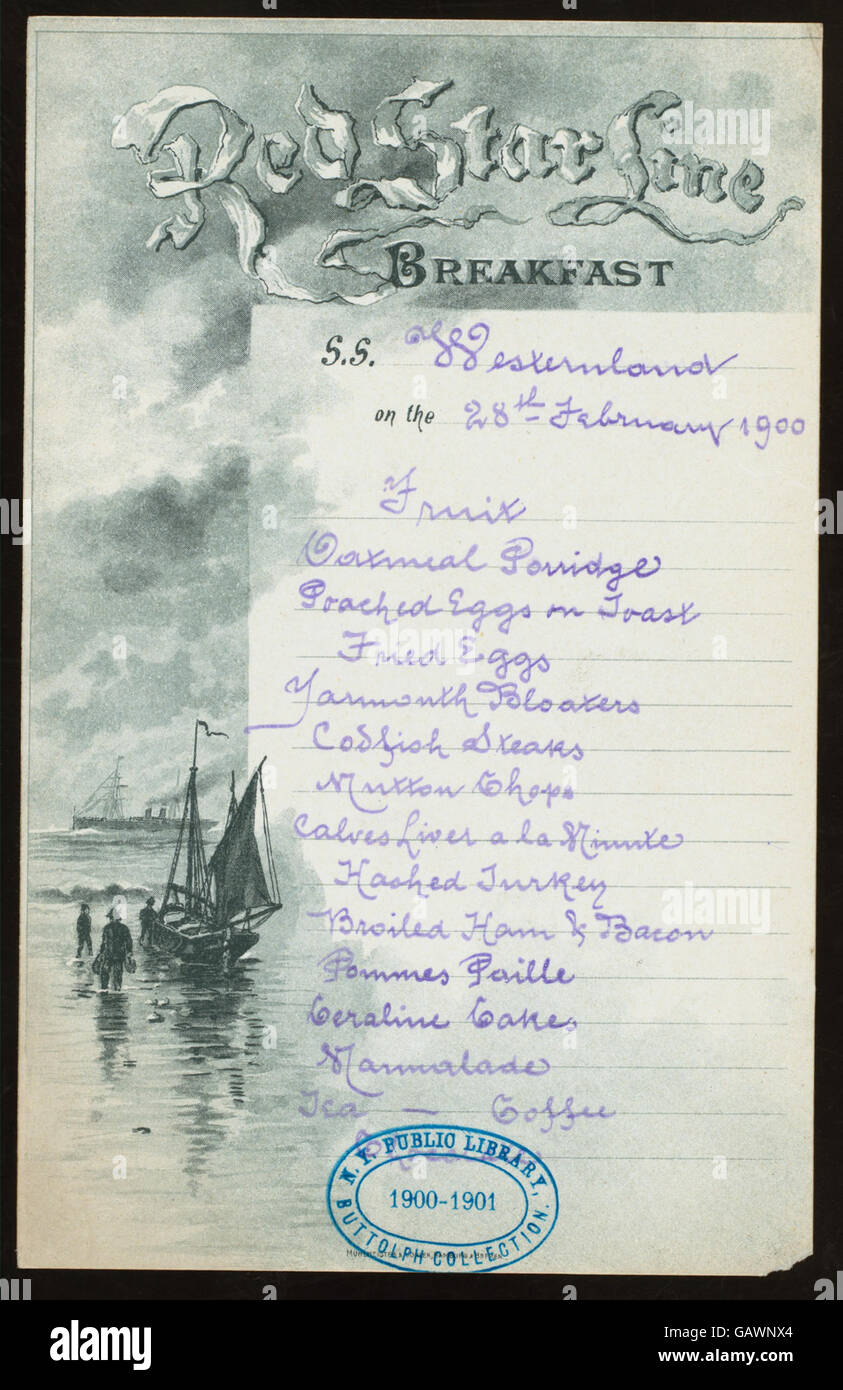 Red Star Line
BREAKFAST
S.S. Westernland
on the 28th February 1900
Fruit
Oatmeal Porridge
Poached Eggs on Toast
Fried Eggs
Yarmouth Bloaters
Codfish Steaks
Mutton Chops
Calves Liver a la Minute
Hashed Turkey
Broiled Ham & Bacon
Pommes Paille
Ceraline Cakes
Marmalade
Tea — Coffee
N.Y. PUBLIC LIBRARY,
1900-1901
BUTTOLPH COLLECTION.
alamy
Image ID: GAWNX4
www.alamy.com